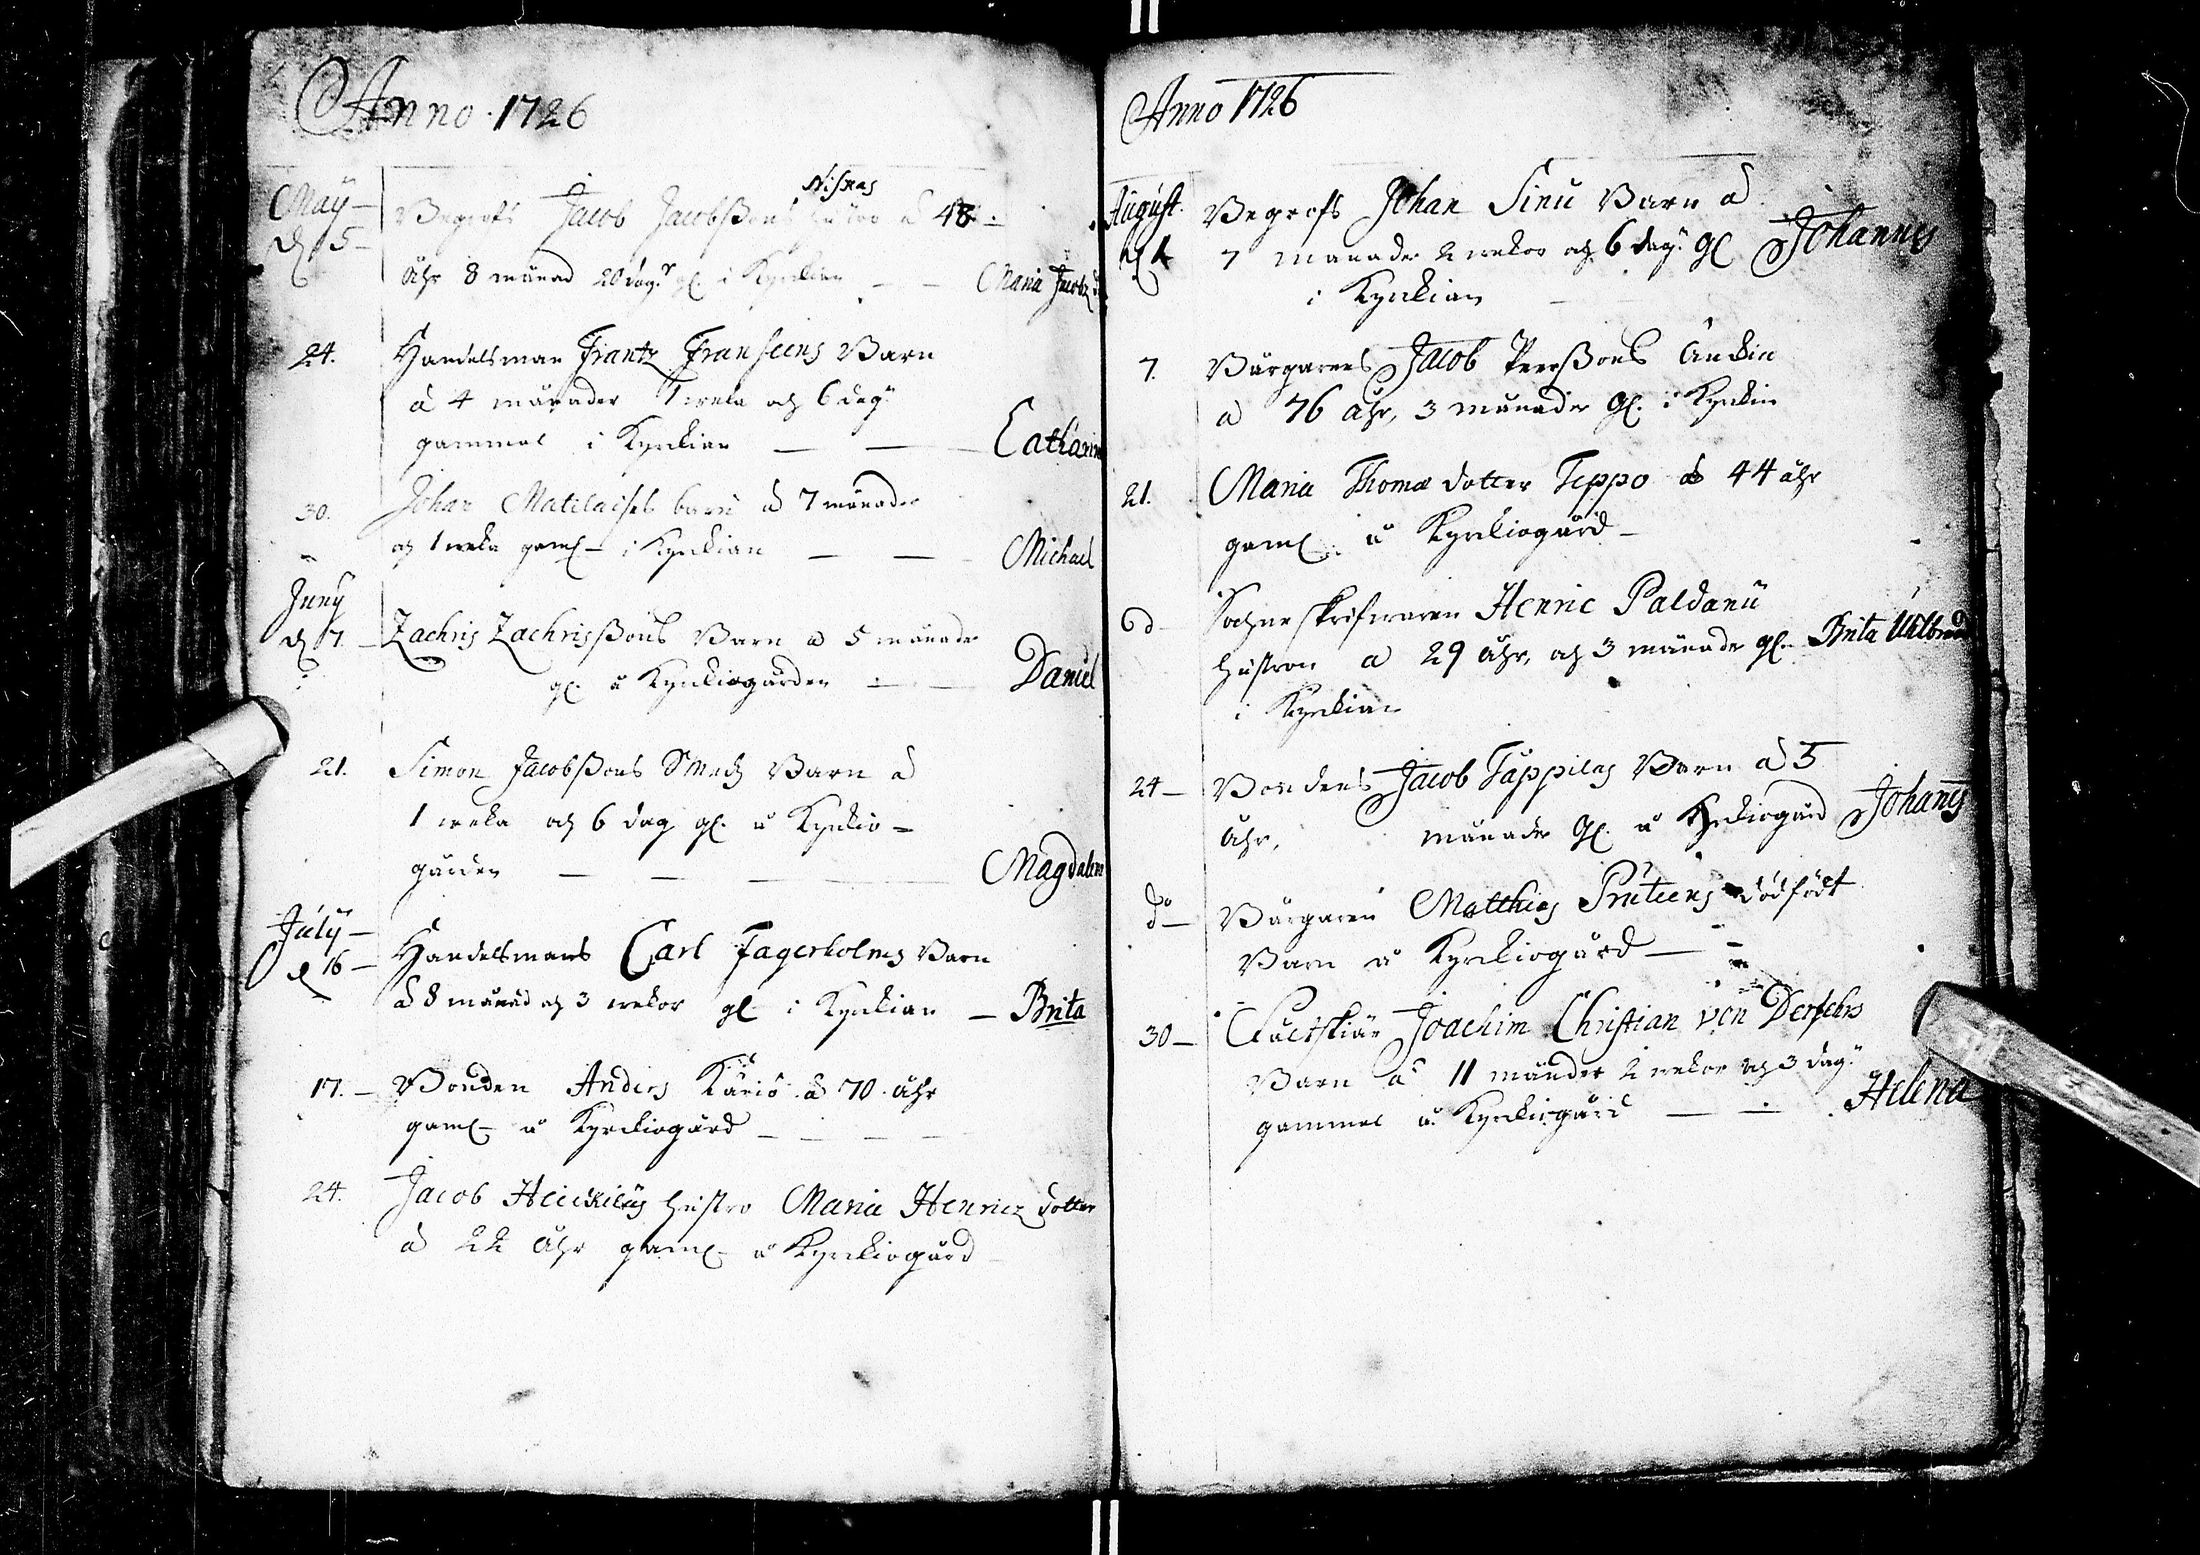 Anno 1726
May
d 5
Nisxas
Begrofs Jacob Jacobßons hustro a 48
åhr 8 månad 20 dag gl. i Kyrckian Maria Jacobz
24. Handelsman Frantz Franseens Barn
a 4 månader 1 weka och 6 dag
gammal i Kyrckian Catharin
30. Johan Matilaises barn a 7 månader
och 1 weka gaml i Kyrckian Michael
Juny
d 7. Zachris Zachrisßons Barn a 5 månader
gl. å Kyrckiogården Daniel
21. Simon Jacobßons Smedz Barn a
1 weka och 6 dag gl. å Kyrckio-
gården Magdalen
July
d 16 Handelsmans Carl Fagerholms Barn
a 8 månad och 3 wekor gl i Kyrckian Brita
17. Bonden Anders Käriö a 70 åhr
gaml å Kyrckiogård
24. Jacob hustro Maria Henricz dotter
a 22 åhr gaml å Kyrckiogård
Anno 1726
August. Begrofs Johan Sinu Barn a
d 1 7 månader 2 wekor och 6 dag gl Johannes
i Kyrckian
7. Bårgarens Jacob Peerßons Änckia
a 76 åhr, 3 månader gl. i Kyrckia
21. Maria Thomæ dotter Teppo a 44 åhr
gaml å Kyrckiogård
Sochneskrifwaren Henric Paldanii
hustro a 29 åhr, och 3 månader gl. Brita
i Kyrckian
24 Bondens Jacob Tåppilas Barn a 5
åhr, månader gl. å Kyrckiogård Johanes
do Bårgaren Matthies Pruteens dödfödt
Barn å Kyrckiogård
30 Joachim Christian von Dersehrs
Barn a 11 månader 2 wekor och 3 dag
gammal å Kyrckiogård Helena